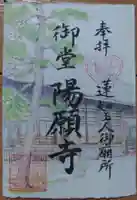 奉拝
蓮如上人御旧所
御堂
陽願寺